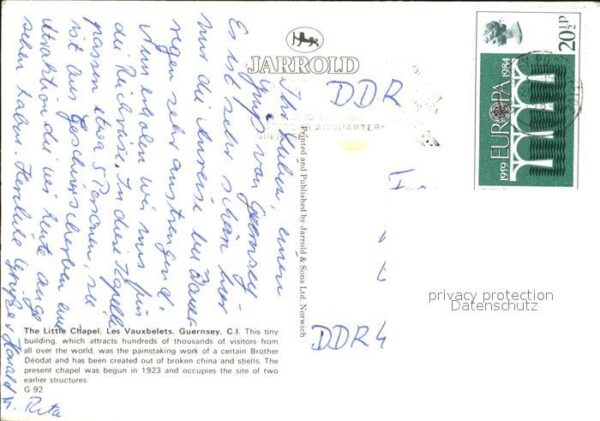 JARROLD
DDR
20½P
EUROPA
1959
1984
HEADQUARTERS
Ihr Lieben, einen
Gruß von Guernsey.
Es ist sehr schön hier
nur die Anreise
sehr anstrengend.
Nun erholen wir uns für
die Rückreise. In diese Kapelle
passen etwa 5 Personen, sie
ist aus Geschirrscherben eine
Attraktion die wir heute ange
sehen haben. Herzliche Grüße v. Harald u.
Rita
Printed and Published by Jarrold & Sons Ltd. Norwich
DDR 4
privacy protection
Datenschutz
The Little Chapel, Les Vauxbelets, Guernsey, C.I. This tiny
building, which attracts hundreds of thousands of visitors from
all over the world, was the painstaking work of a certain Brother
Déodat and has been created out of broken china and shells. The
present chapel was begun in 1923 and occupies the site of two
earlier structures
G 92